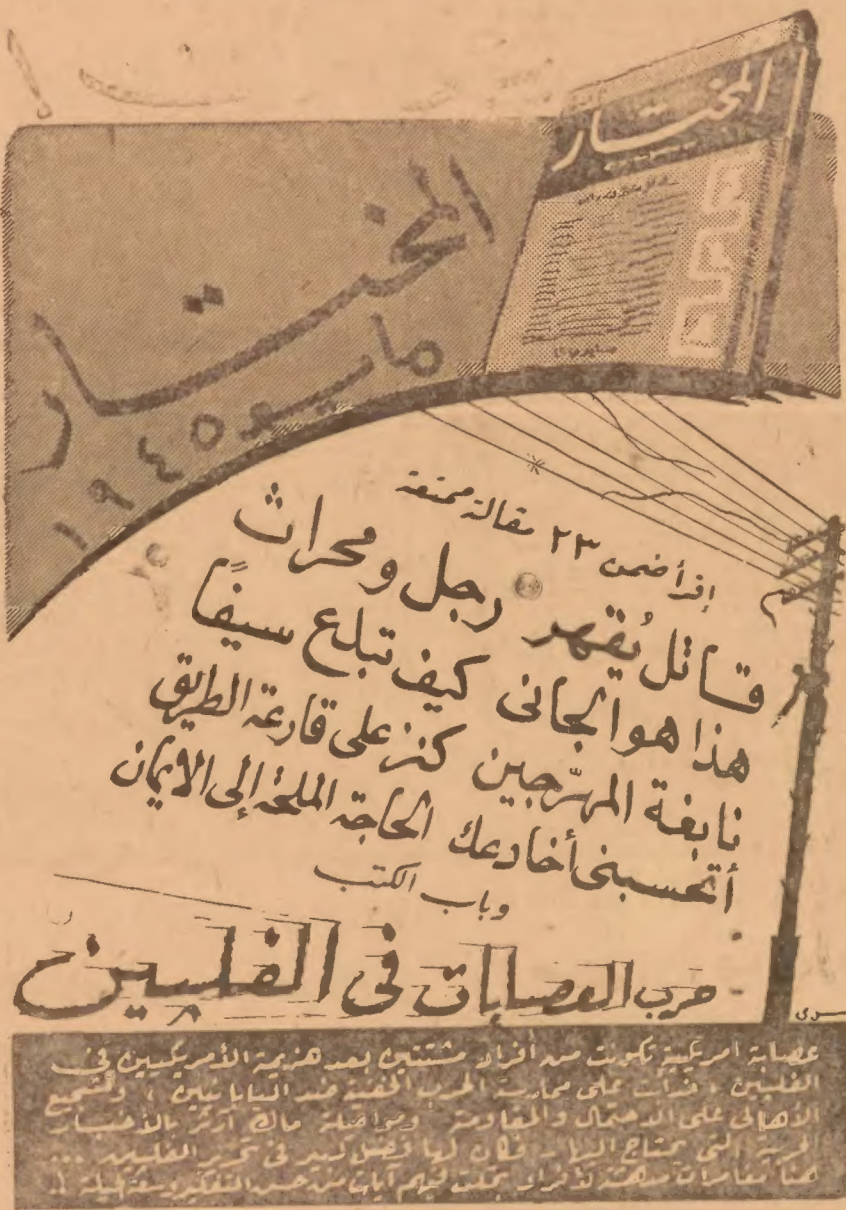 المختار
المختار
مايو ١٩٤٥
إقرأ ضمن ٢٣ مقالة ممتعة
قاتل يُقهر رجل ومحراث
هذا هو الجانى كيف تبلع سيفًا
نابغة المهرّجين كنز على قارعة الطريق
أتحسبنى أخادعك الحاجة الملحة إلى الايمان
وباب الكتب
حرب العصابات فى الفلبين
عصابة امريكية تكونت من أفراد مشتتين بعد هزيمة الأمريكيين فى
الفلبين، على ممارسة الحرب الخفية ضد اليابانيين، وتشجيع
الأهالى على الاحتمال والمقاومة ومواصلة ماك آرثر بالأخبار
الحربية التى يحتاج اليها، فكان لها فضل كبير فى تحرير الفلبين ...
هنا مغامرات مدهشة لأفراد تجلت فيهم آيات من حسن التفكير وسعة الحيلة !!